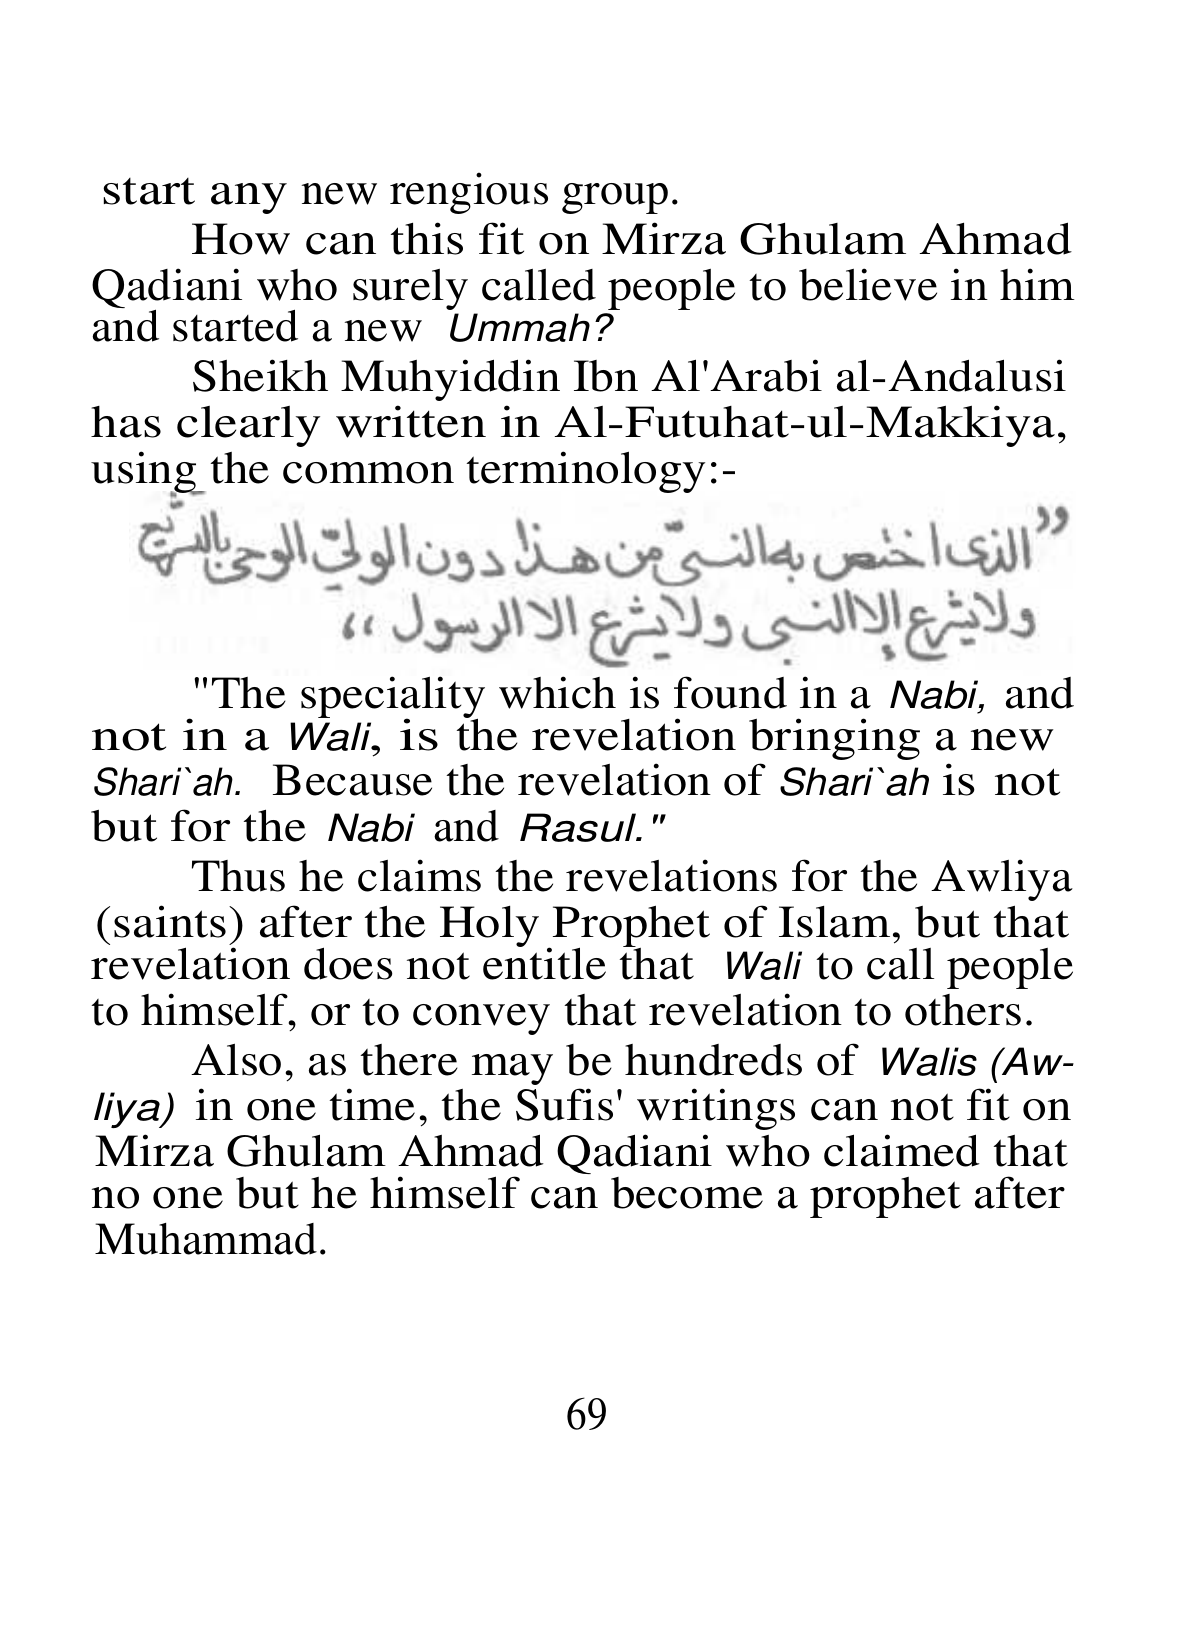 start any new rengious group.
How can this fit on Mirza Ghulam Ahmad
Qadiani who surely called people to believe in him
and started a new Ummah?
Sheikh Muhyiddin Ibn Al'Arabi al-Andalusi
has clearly written in Al-Futuhat-ul-Makkiya,
using the common terminology:-
”الذى اختص به النبىّ من هذا دون الوليّ الوحى بالتشريع
ولا يشرع إلا النبى ولا يشرع الا الرسول،،
"The speciality which is found in a Nabi, and
not in a Wali, is the revelation bringing a new
Shari`ah. Because the revelation of Shari`ah is not
but for the Nabi and Rasul."
Thus he claims the revelations for the Awliya
(saints) after the Holy Prophet of Islam, but that
revelation does not entitle that Wali to call people
to himself, or to convey that revelation to others.
Also, as there may be hundreds of Walis (Aw-
liya) in one time, the Sufis' writings can not fit on
Mirza Ghulam Ahmad Qadiani who claimed that
no one but he himself can become a prophet after
Muhammad.
69